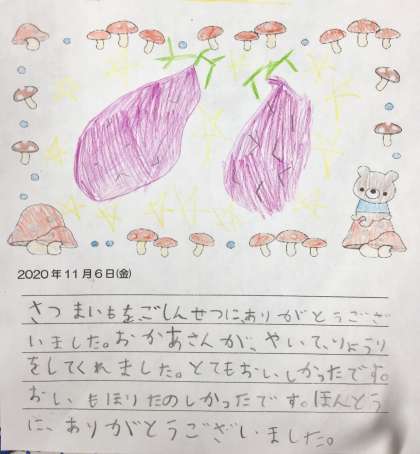 2020年11月6日(金)
さつまいもを、ごしんせつに、ありがとうござ
いました。おかあさんが、やいて、りょうり
をしてくれました。とてもおいしかったです。
おいもほりたのしかったです。ほんとう
に、ありがとうございました。